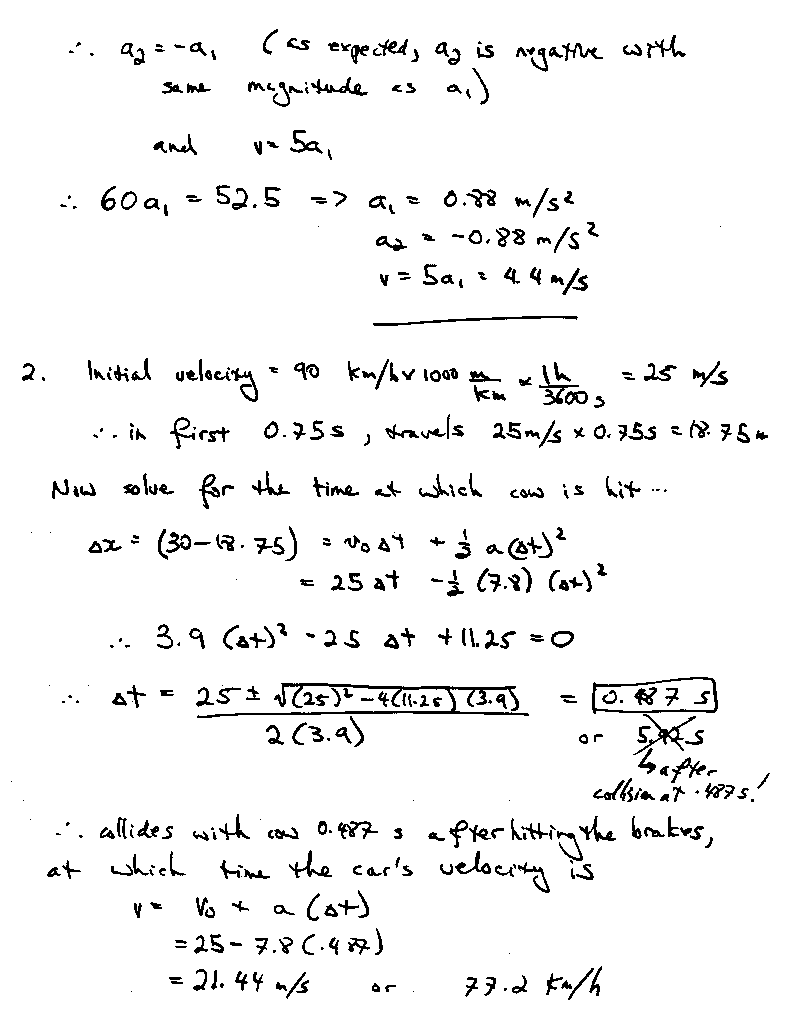 ∴ a₂ = -a₁ (as expected, a₂ is negative with
same magnitude as a₁)
and v = 5a₁
∴ 60a₁ = 52.5 => a₁ = 0.88 m/s²
a₂ = -0.88 m/s²
v = 5a₁ = 4.4 m/s
2. Initial velocity = 90 km/h × 1000 m/km × 1h/3600s = 25 m/s
∴ in first 0.75s, travels 25m/s × 0.75s = 18.75m
Now solve for the time at which cow is hit...
Δx = (30-18.75) = v₀Δt + ½a(Δt)²
= 25Δt - ½(7.8)(Δt)²
∴ 3.9(Δt)² - 25Δt + 11.25 = 0
∴ Δt = (25 ± √((25)² - 4(11.25)(3.9)))/2(3.9) = 0.487 s
or 5.92 s
↳ after
collision at .487s!
∴ collides with cow 0.487 s after hitting the brakes,
at which time the car's velocity is
v = v₀ + a(Δt)
= 25 - 7.8(.487)
= 21.44 m/s or 77.2 km/h